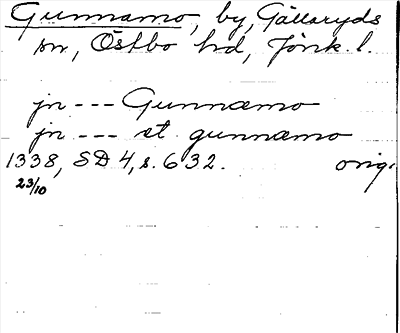 Gunnamo, by, Gällaryds
sn, Östbo hd, Jönk. l.
jn --- Gunnæmo
jn --- et gunnæmo
1338, SD 4, s. 632. orig.
23/10